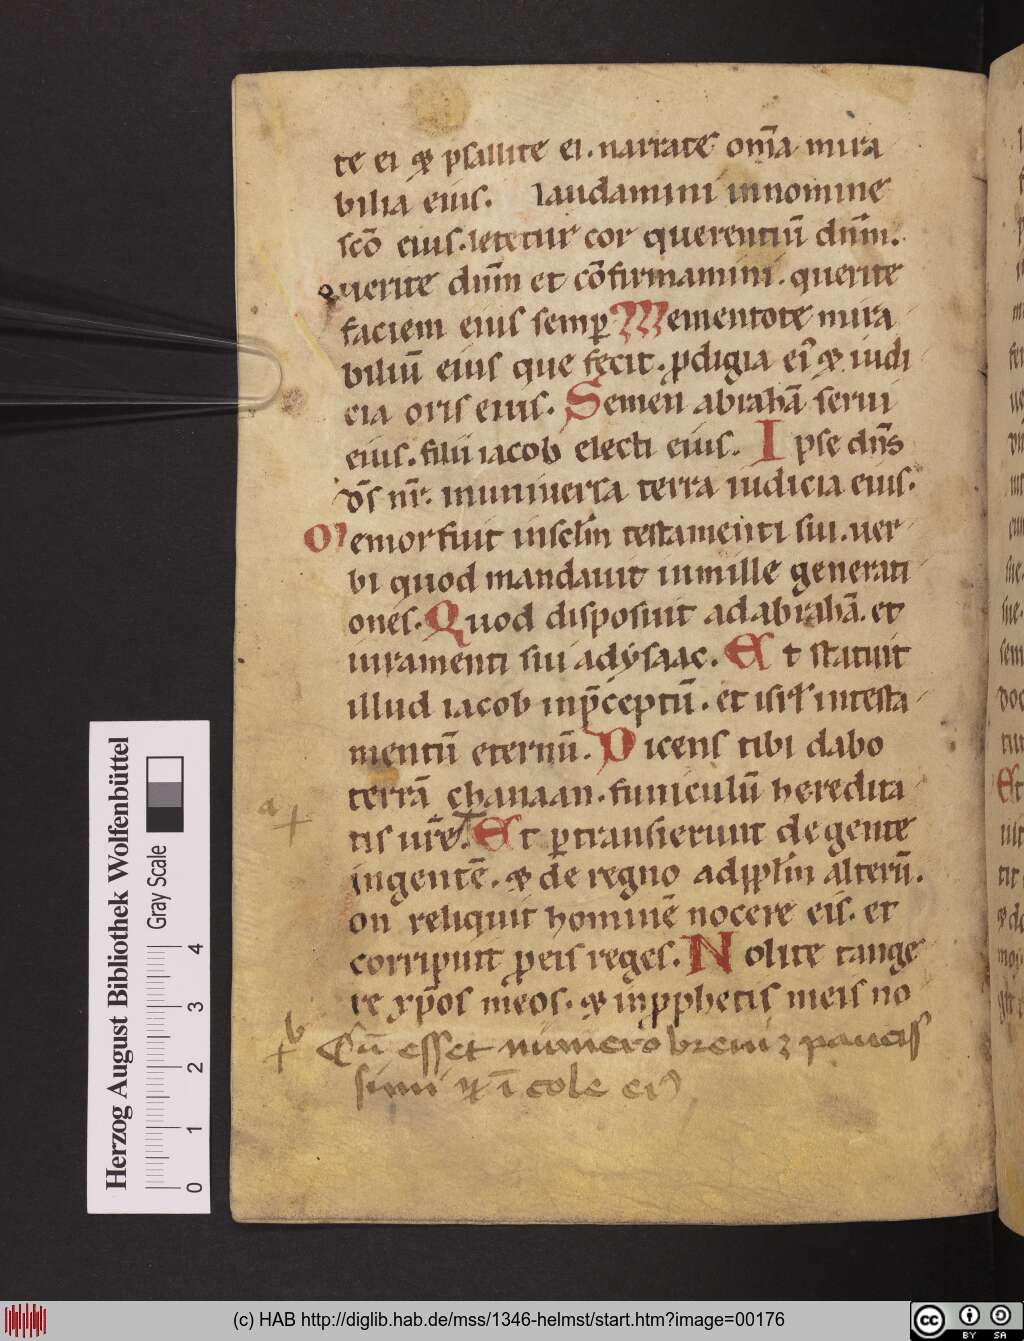 te ei ⁊ psallite ei. narrate om̄a mira
bilia eius. laudamini innomine
sc̄o eius. letetur cor querentiū dn̄m.
Querite dn̄m et cōfirmamini. querite
faciem eius semp̱ Mementote mira
biliū eius que fecit. ꝓdigia ei᷒ ⁊ iudi
cia oris eius. Semen abrahā serui
eius. filii iacob electi eius. Ipse dn̄s
ds̄ nr̄. inuniuersa terra iudicia eius.
Memor fuit insc̄lm testamenti sui. uer
bi quod mandauit inmille generati
ones. Quod disposuit adabrahā. et
iuramenti sui adysaac. Et statuit
illud iacob inp̄ceptū. et isrl̄ intesta
mentū eternū. Dicens tibi dabo
terrā chanaan. funiculū heredita
tis ur̄e. Et ꝑtransierunt degente
ingentē. ⁊ de regno adpp̄lm alterū.
on reliquit hominē nocere eis. et
corripuit ꝓeis reges. Nolite tange
re xp̄os meos. ⁊ inꝓphetis meis no
a +
b + Cū esset numero breui paucis
simi ⁊ īcole ei᷒
Herzog August Bibliothek Wolfenbüttel
Gray Scale
0 1 2 3 4
(c) HAB http://diglib.hab.de/mss/1346-helmst/start.htm?image=00176
cc BY SA